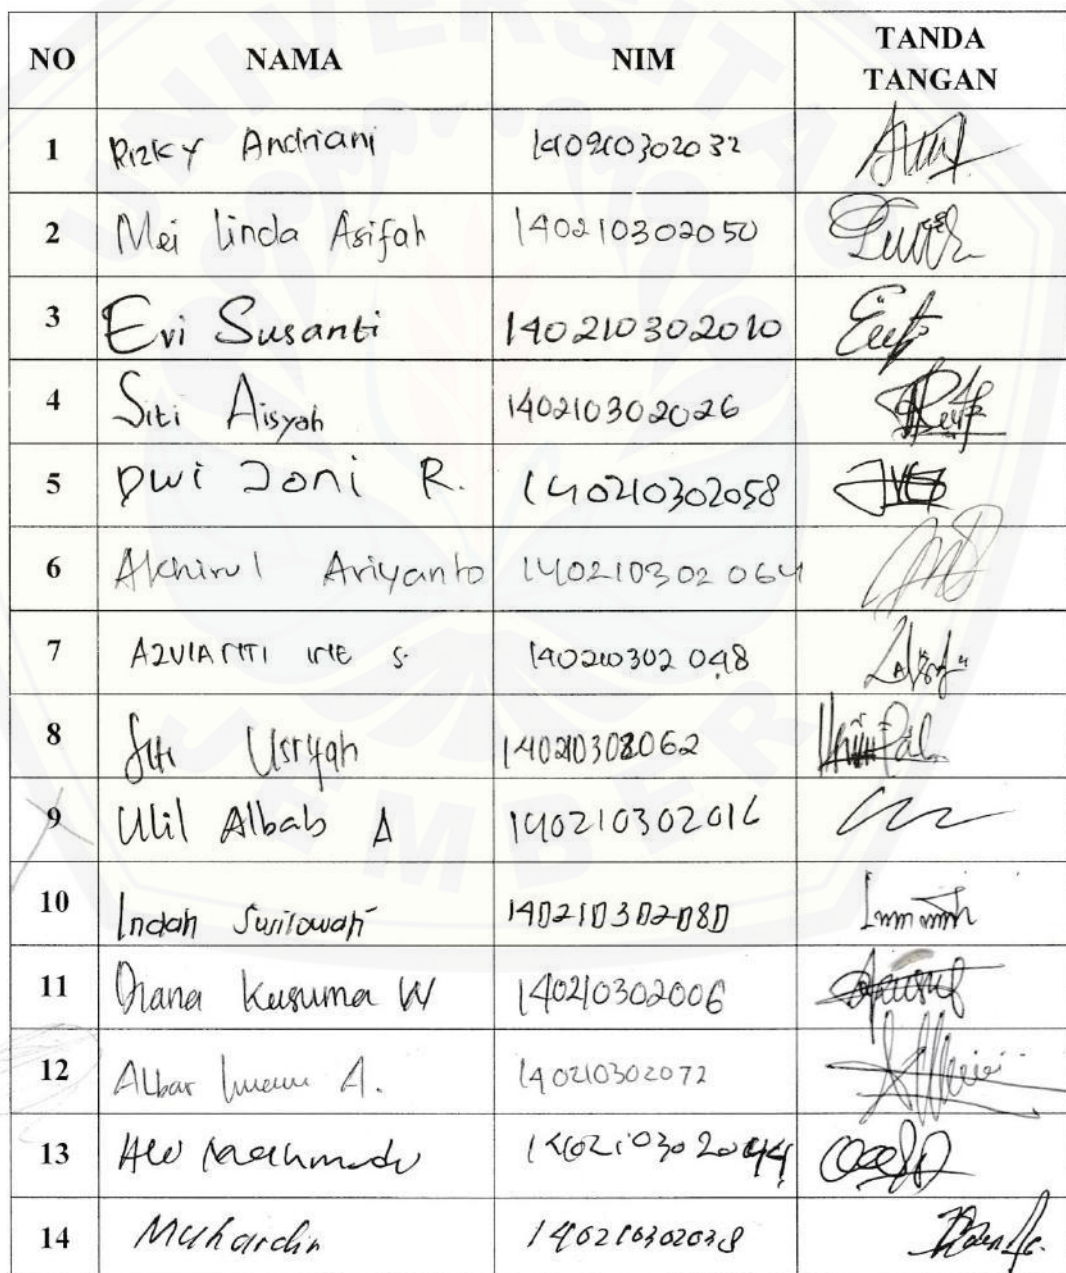 UNIVERSITAS
JEMBER
NO NAMA NIM TANDA
TANGAN
1 Rizky Andriani 140210302032
2 Mei linda Asifah 140210302050
3 Evi Susanti 140210302010
4 Siti Aisyah 140210302026
5 Dwi Joni R. 140210302058
6 Akhirul Ariyanto 140210302064
7 140210302048
8 Siti Usriyah 140210302062
9 Ulil Albab A 140210302016
10 Indah Susilowati 140210302080
11 Diana Kusuma W 140210302006
12 Albar A. 140210302072
13 140210302044
14 Muhardin 140210302038